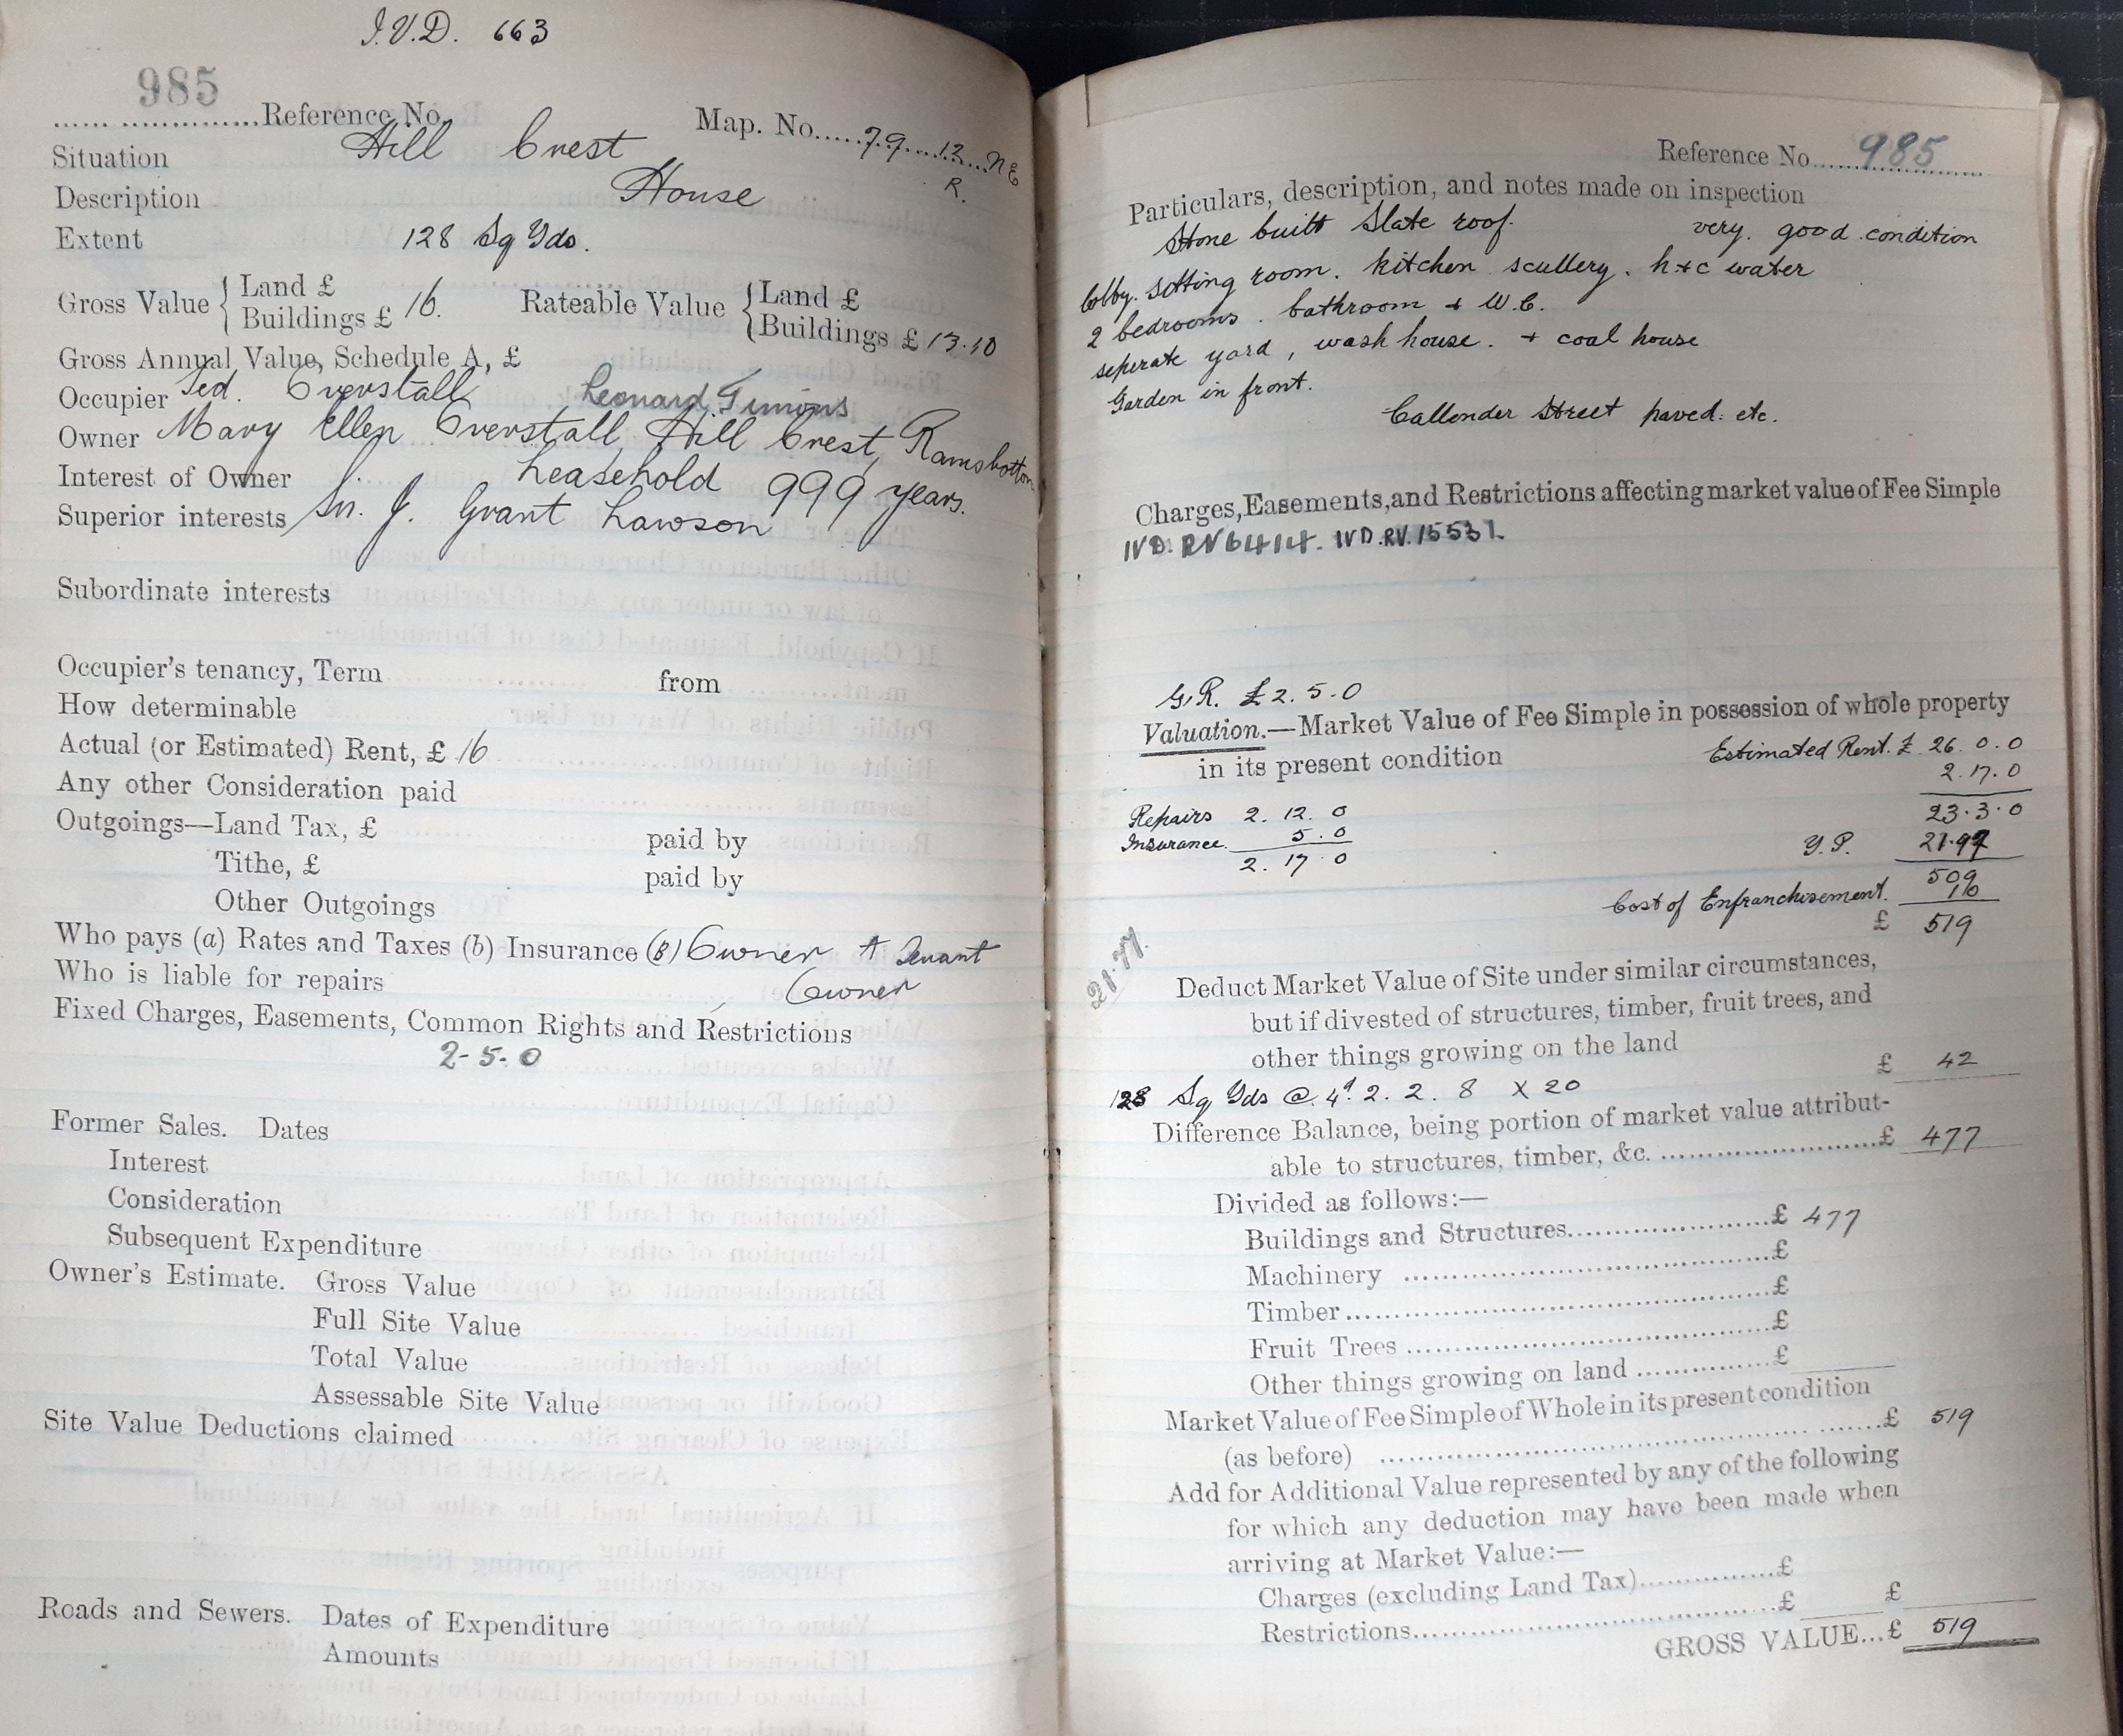 I.V.D. 663
985
Reference No. Map. No. 79 12 NE
R.
Situation Hill Crest
Description House
Extent 128 Sq Yds.
Gross Value { Land £ Rateable Value { Land £
Buildings £ 16. Buildings £ 13.10
Gross Annual Value, Schedule A, £
Occupier Leonard Timins
Owner Mary Ellen Overstall, Hill Crest, Ramsbottom
Interest of Owner Leasehold 999 years.
Superior interests Sir. J. Grant Lawson
Subordinate interests
Occupier's tenancy, Term from
How determinable
Actual (or Estimated) Rent, £ 16
Any other Consideration paid
Outgoings—Land Tax, £ paid by
Tithe, £ paid by
Other Outgoings
Who pays (a) Rates and Taxes (b) Insurance (B) Owner A Tenant
Who is liable for repairs Owner
Fixed Charges, Easements, Common Rights and Restrictions
2-5-0
Former Sales. Dates
Interest
Consideration
Subsequent Expenditure
Owner's Estimate. Gross Value
Full Site Value
Total Value
Assessable Site Value
Site Value Deductions claimed
Roads and Sewers. Dates of Expenditure
Amounts
Reference No. 985
Particulars, description, and notes made on inspection
Stone built Slate roof. very. good condition
lobby. sitting room. kitchen scullery. h+c water
2 bedrooms. bathroom + W.C.
seperate yard, wash house. + coal house
Garden in front.
Callender Street paved. etc.
Charges, Easements, and Restrictions affecting market value of Fee Simple
IVD. RV 6414. IVD. RV. 15531.
G.R. £2.5.0
Valuation.—Market Value of Fee Simple in possession of whole property
in its present condition Estimated Rent. £ 26.0.0
2.17.0
Repairs 2.12.0 23.3.0
Insurance. 5.0 Y.P.
2.17.0 509
Cost of Enfranchisement. 10
£ 519
21.77.
Deduct Market Value of Site under similar circumstances,
but if divested of structures, timber, fruit trees, and
other things growing on the land £ 42
128 Sq Yds @ 4d. 2.2.8 X 20
Difference Balance, being portion of market value attribut-
able to structures, timber, &c. £ 477
Divided as follows:—
Buildings and Structures £ 477
Machinery £
Timber £
Fruit Trees £
Other things growing on land £
Market Value of Fee Simple of Whole in its present condition
(as before) £ 519
Add for Additional Value represented by any of the following
for which any deduction may have been made when
arriving at Market Value:—
Charges (excluding Land Tax) £
Restrictions £ £
GROSS VALUE...£ 519